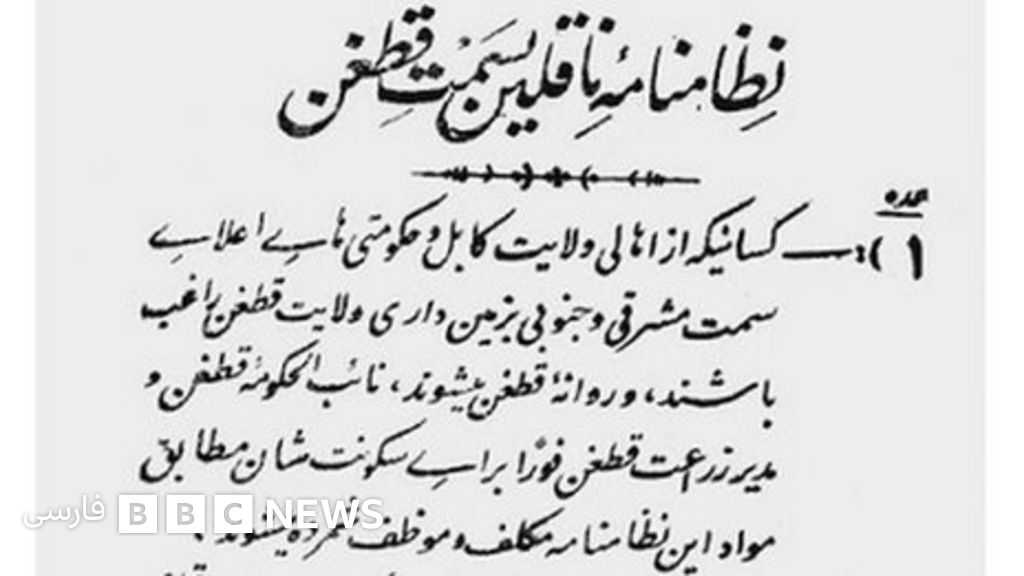 نظامنامهٔ ناقلین بسمت قطغن
عدد
۱):— کسانیکه از اهالی ولایت کابل و حکومتی های اعلای
سمت مشرقی و جنوبی بزمین داری ولایت قطغن راغب
باشند، و روانهٔ قطغن میشوند، نائب الحکومهٔ قطغن و
مدیر زراعت قطغن فورًا برای سکونت شان مطابق
مواد این نظامنامه مکلف و موظف شمرده میشوند
BBC NEWS فارسی